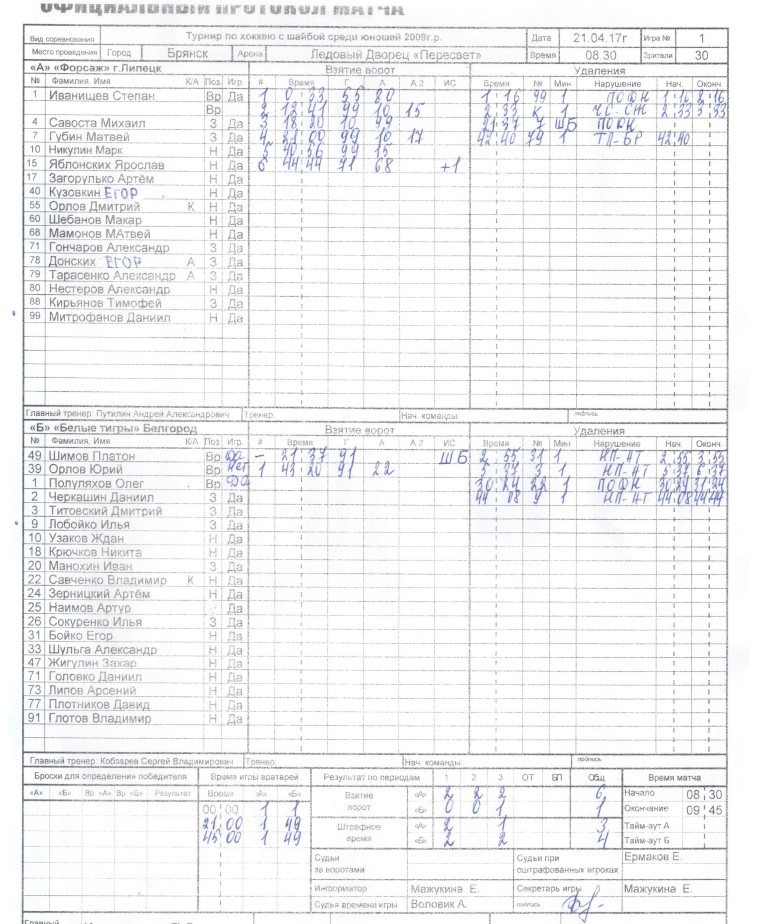 ОФИЦИАЛЬНЫЙ ПРОТОКОЛ МАТЧА
Вид соревнования Турнир по хоккею с шайбой среди юношей 2009г.р. Дата 21.04.17г Игра № 1
Место проведения Город Брянск Арена Ледовый Дворец «Пересвет» Время 08.30 Зрители 30
«А» «Форсаж» г.Липецк Взятие ворот Удаления
№ Фамилия, Имя К/А Поз Игр. # Время Г А А 2 ИС Время № Мин Нарушение Нач. Оконч.
1 Иванищев Степан Вр Да 1 0 33 55 80 1 16 99 1 ПОДН 1 16 2 16
Вр 2 13 41 99 10 15 2 33 К 1 2 33 3 33
4 Савоста Михаил З Да 3 18 20 10 99 21 37 7 ШБ ПОДН
7 Губин Матвей З Да 4 21 00 99 10 17 42 40 79 1 ТП-БР 42 40
10 Никулин Марк Н Да 5 40 36 99 15
15 Яблонских Ярослав Н Да 6 44 44 71 68 +1
17 Загорулько Артём Н Да
40 Кузовкин ЕГОР Н Да
55 Орлов Дмитрий К Н Да
60 Шебанов Макар Н Да
68 Мамонов МАтвей Н Да
71 Гончаров Александр З Да
78 Донских ЕГОР А З Да
79 Тарасенко Александр А З Да
80 Нестеров Александр Н Да
88 Кирьянов Тимофей З Да
99 Митрофанов Даниил Н Да
Главный тренер: Путилин Андрей Александрович Тренер: Нач. команды: подпись
«Б» «Белые тигры» Белгород Взятие ворот Удаления
№ Фамилия, Имя К/А Поз Игр. # Время Г А А 2 ИС Время № Мин Нарушение Нач. Оконч.
49 Шимов Платон Вр Да – 21 37 91 ШБ 2 55 31 1 НП-АТ 2 55 3 55
39 Орлов Юрий Вр Нет 1 43 20 91 22 5 37 3 1 НП-АТ 5 37 6 37
1 Полуляхов Олег Вр Да 30 24 22 1 ПОДН 30 24 31 24
2 Черкашин Даниил З Да 44 08 9 1 НП-АТ 44 08 44 44
3 Титовский Дмитрий З Да
9 Лобойко Илья З Да
10 Узаков Ждан Н Да
18 Крючков Никита Н Да
20 Манохин Иван З Да
22 Савченко Владимир К Н Да
24 Зерницкий Артём Н Да
25 Наимов Артур Да
26 Сокуренко Илья З Да
31 Бойко Егор Н Да
33 Шульга Александр Н Да
47 Жигулин Захар Н Да
71 Головко Даниил Н Да
73 Липов Арсений Н Да
77 Плотников Давид Н Да
91 Глотов Владимир Н Да
Главный тренер: Кобзарев Сергей Владимирович Тренер: Нач. команды: подпись
Броски для определения победителя Время игры вратарей Результат по периодам 1 2 3 ОТ БП Общ Время матча
«А» «Б» Вр «А» Вр «Б» Результат Время «А» «Б» Взятие ворот «А» 2 2 2 6 Начало 08 30
00 00 1 1 «Б» 0 0 1 1 Окончание 09 45
21 00 1 49 Штрафное время «А» 2 1 3 Тайм-аут А
45 00 1 49 «Б» 2 2 4 Тайм-аут Б
Судьи за воротами Судьи при оштрафованных игроках Ермаков Е.
Информатор Мажукина Е. Секретарь игры Мажукина Е.
Судья времени игры Воловик А. подпись
Главный